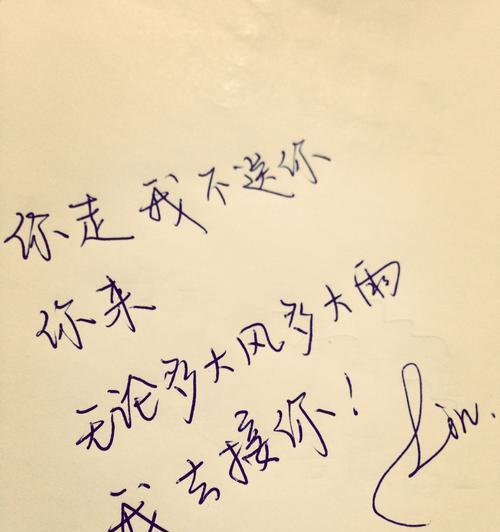 你走 我不送你
你来
无论多大风多大雨
我去接你!
Lin.